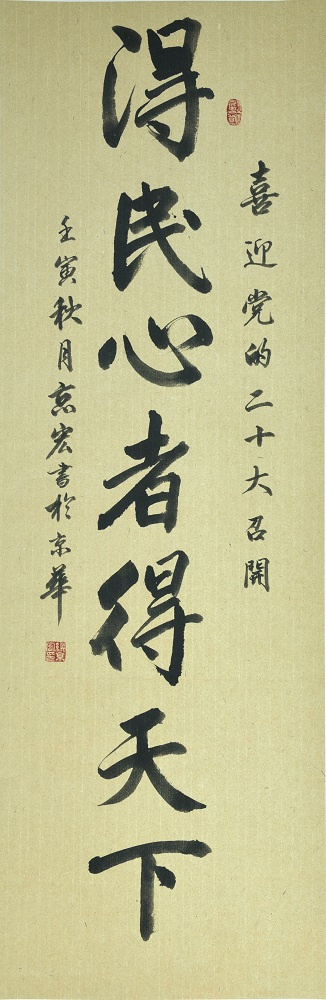 喜迎党的二十大召開
得民心者得天下
壬寅秋月京宏書於京華